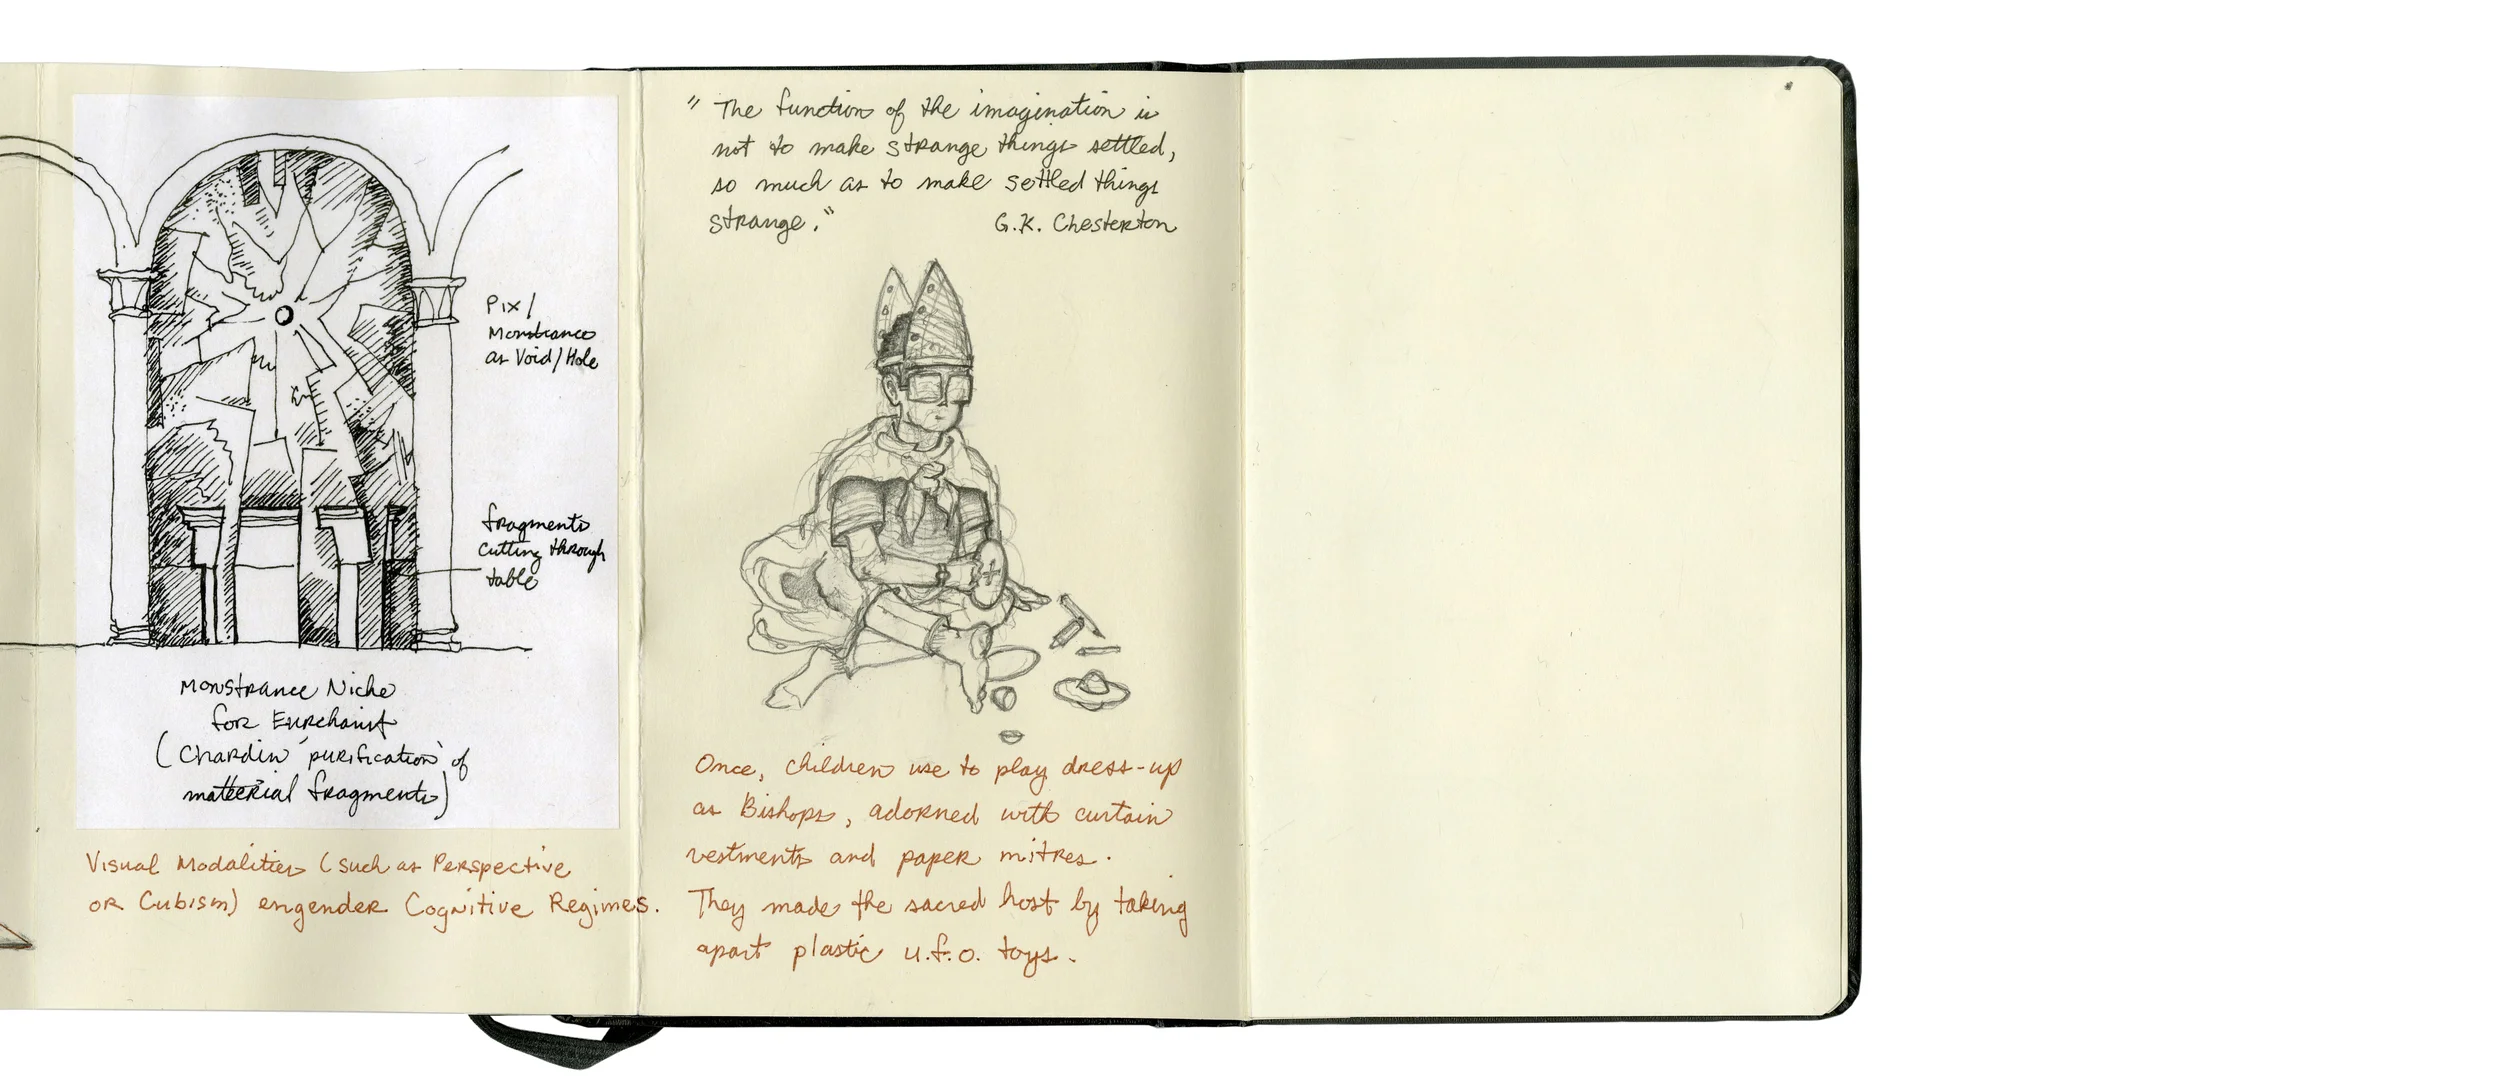 Pix/
Monstrance
as Void/Hole
fragments
cutting through
table
Monstrance Niche
for Eurcharist
(Chardin 'purification' of
mateerial fragments)
Visual Modalities (such as Perspective
or Cubism) engender Cognitive Regimes.
"The function of the imagination is
not to make strange things settled,
so much as to make settled things
strange."
G.K. Chesterton
Once, children use to play dress-up
as Bishops, adorned with curtain
vestments and paper mitres.
They made the sacred host by taking
apart plastic u.f.o. toys.